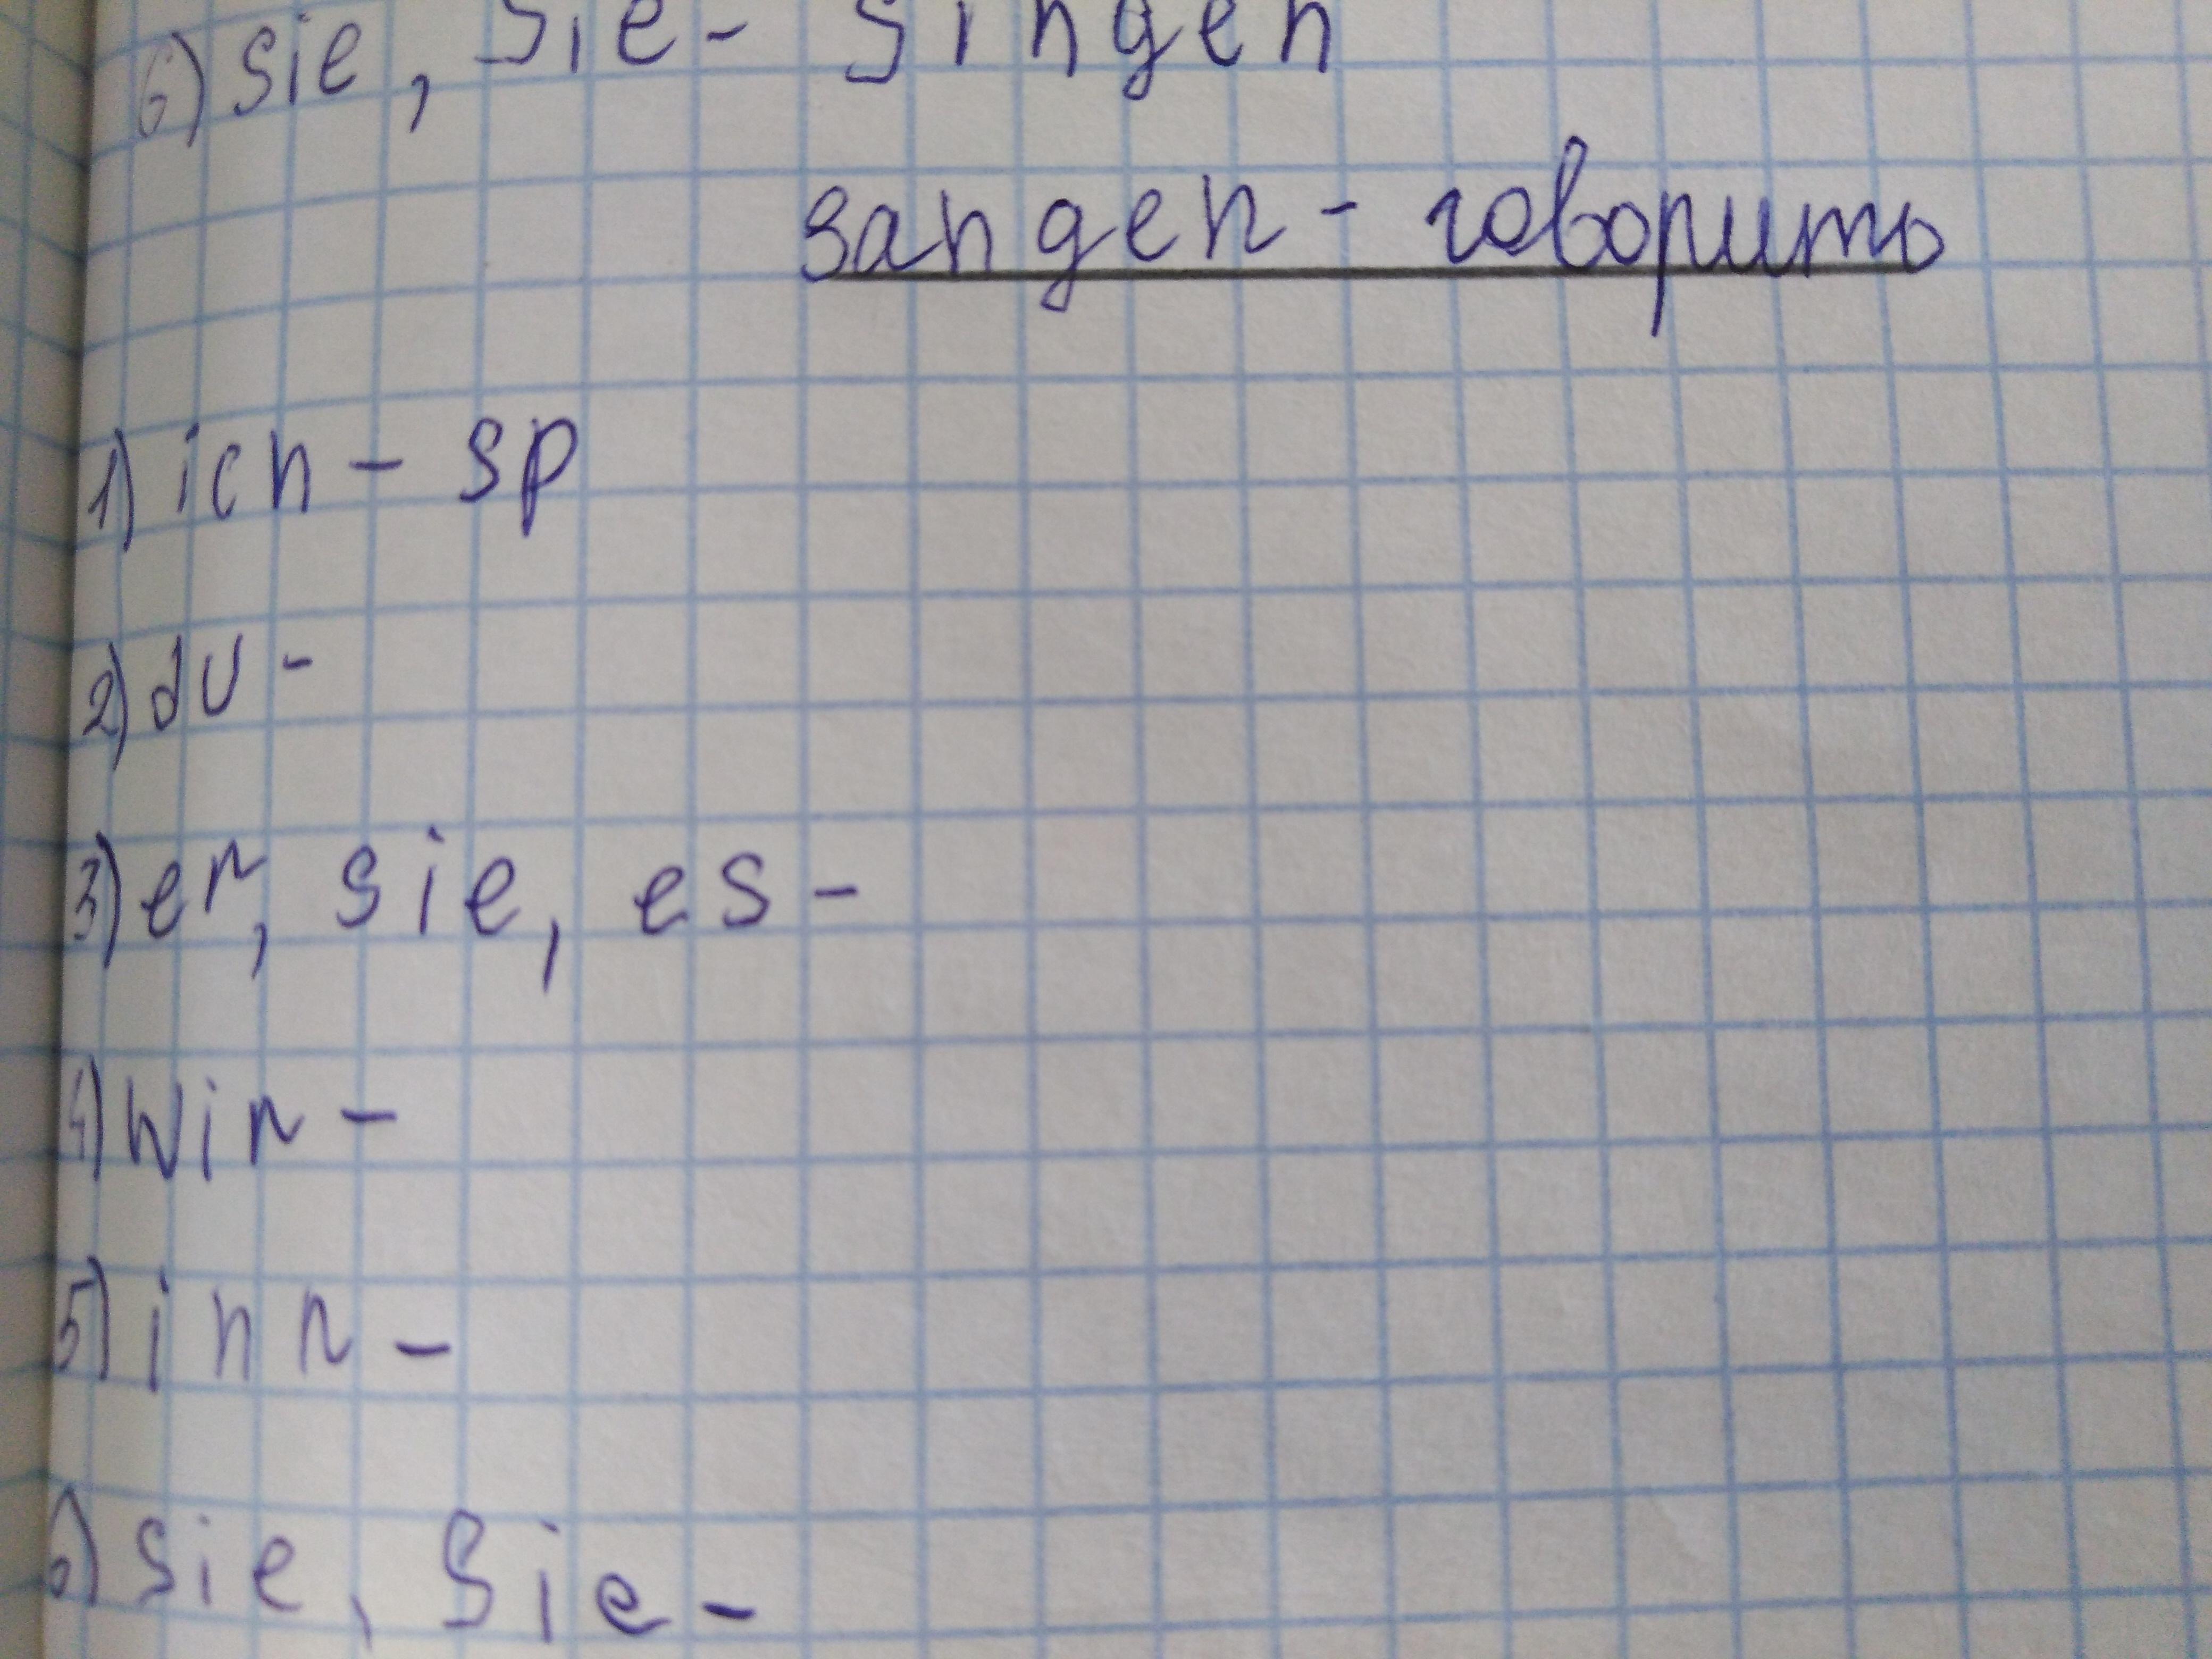 6) sie, Sie - singen
sangen - говорить
1) ich - sp
2) du -
3) er, sie, es -
4) wir -
5) ihr -
6) sie, Sie -